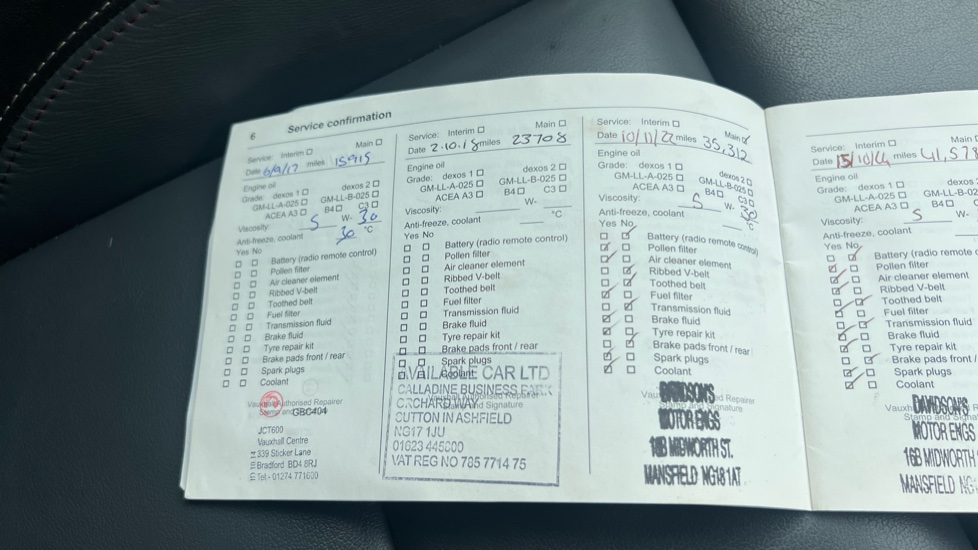 6 Service confirmation
Service: Interim □ Main □
Date 6/9/17 miles 15915
Engine oil
Grade: dexos 1 □ dexos 2 □
GM-LL-A-025 □ GM-LL-B-025 □
ACEA A3 □ B4 □ C3 □
Viscosity: 5 W- 30
Anti-freeze, coolant 30 °C
Yes No
Battery (radio remote control)
Pollen filter
Air cleaner element
Ribbed V-belt
Toothed belt
Fuel filter
Transmission fluid
Brake fluid
Tyre repair kit
Brake pads front / rear
Spark plugs
Coolant
Vauxhall Authorised Repairer
Stamp and GBC404
JCT600
Vauxhall Centre
339 Sticker Lane
Bradford BD4 8RJ
Tel - 01274 771600
Service: Interim □ Main □
Date 2.10.18 miles 23708
Engine oil
Grade: dexos 1 □ dexos 2 □
GM-LL-A-025 □ GM-LL-B-025 □
ACEA A3 □ B4 □ C3 □
Viscosity: W-
Anti-freeze, coolant °C
Yes No
Battery (radio remote control)
Pollen filter
Air cleaner element
Ribbed V-belt
Toothed belt
Fuel filter
Transmission fluid
Brake fluid
Tyre repair kit
Brake pads front / rear
Spark plugs
Coolant
AVAILABLE CAR LTD
CALLADINE BUSINESS PARK
ORCHARD WAY
SUTTON IN ASHFIELD
NG17 1JU
01623 445000
VAT REG NO 785 7714 75
Service: Interim □ Main
Date 10/11/22 miles 35,312
Engine oil
Grade: dexos 1 □ dexos 2 □
GM-LL-A-025 □ GM-LL-B-025 □
ACEA A3 □ B4 □ C3 □
Viscosity: 5 W- 30
Anti-freeze, coolant °C
Yes No
Battery (radio remote control)
Pollen filter
Air cleaner element
Ribbed V-belt
Toothed belt
Fuel filter
Transmission fluid
Brake fluid
Tyre repair kit
Brake pads front / rear
Spark plugs
Coolant
DAVIDSONS
MOTOR ENGS
16B MIDWORTH ST.
MANSFIELD NG18 1AT
Service: Interim □ Main
Date 15/10/24 miles 41,578
Engine oil
Grade: dexos 1 □ dexos 2
GM-LL-A-025 □ GM-LL-B-02
ACEA A3 □ B4 □ C3
Viscosity: 5 W-
Anti-freeze, coolant
Yes No
Battery (radio remote c
Pollen filter
Air cleaner element
Ribbed V-belt
Toothed belt
Fuel filter
Transmission fluid
Brake fluid
Tyre repair kit
Brake pads front /
Spark plugs
Coolant
DAVIDSONS
MOTOR ENGS
16B MIDWORTH
MANSFIELD NG